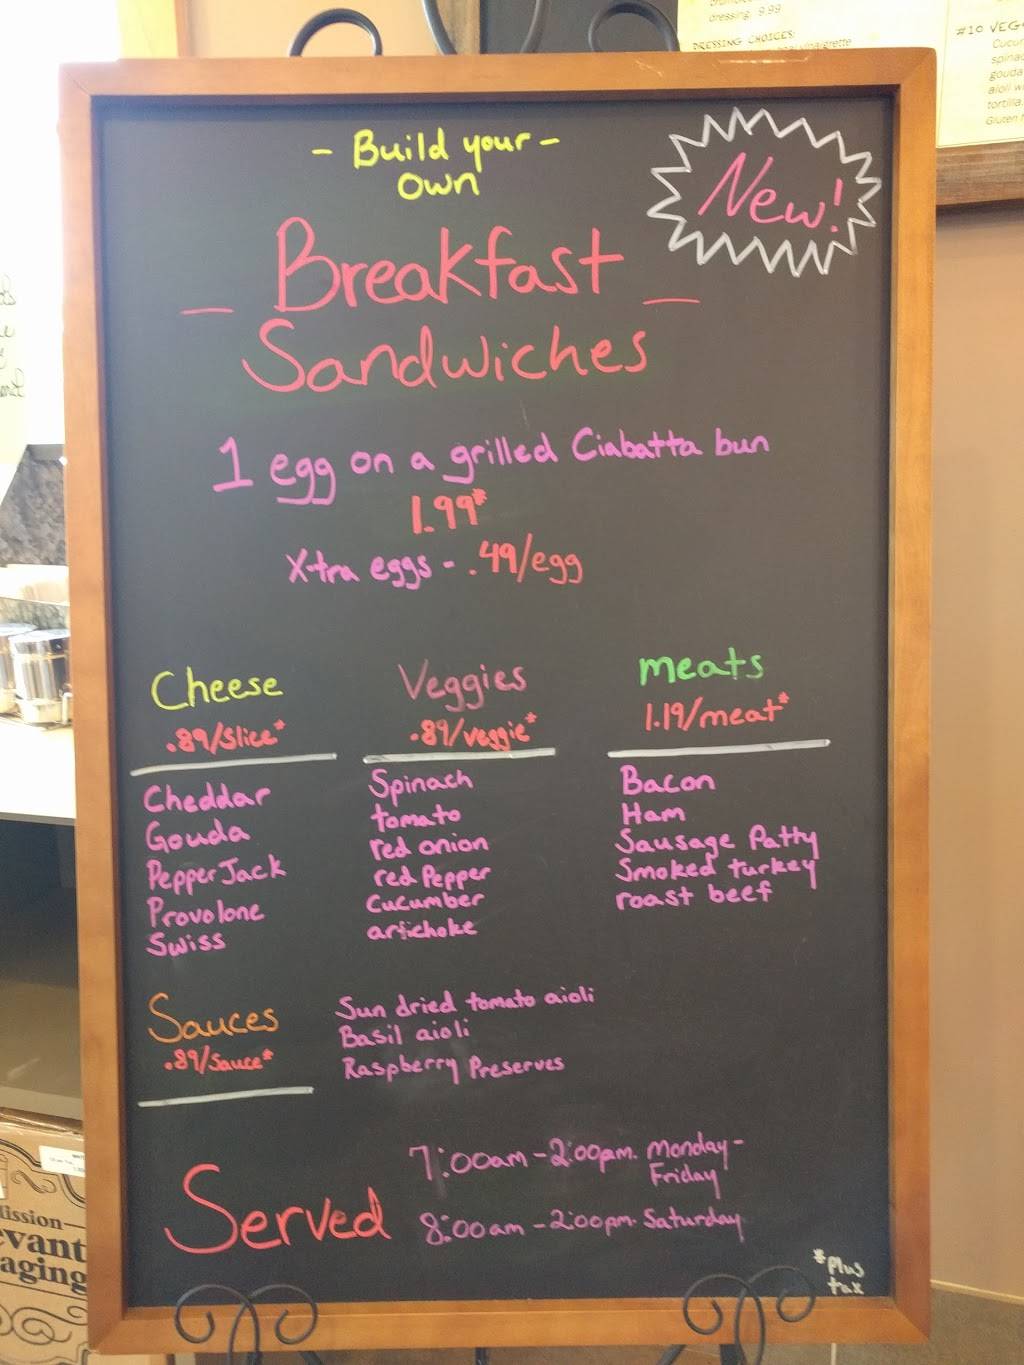 dressing 9.99
DRESSING CHOICES:
#10 VEG
gouda
aioli
tortilla
Gluten
- Build your -
own
New!
_ Breakfast _
Sandwiches
1 egg on a grilled Ciabatta bun
1.99*
X-tra eggs - .49/egg
Cheese
.89/Slice*
Cheddar
Gouda
Pepper Jack
Provolone
Swiss
Veggies
.89/veggie*
Spinach
tomato
red onion
red Pepper
cucumber
artichoke
meats
1.19/meat*
Bacon
Ham
Sausage Patty
Smoked turkey
roast beef
Sauces
.89/Sauce*
Sun dried tomato aioli
Basil aioli
Raspberry Preserves
Served
7:00am - 2:00pm. Monday -
Friday
8:00am - 2:00pm. Saturday
*Plus
tax